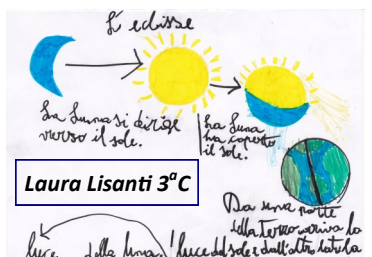 L'eclisse
La Luna si dirige
verso il sole.
La Luna
ha coperto
il sole.
Laura Lisanti 3ªC
Da una parte
della terra arriva la
luce della luna.
luce del sole e dall'altro